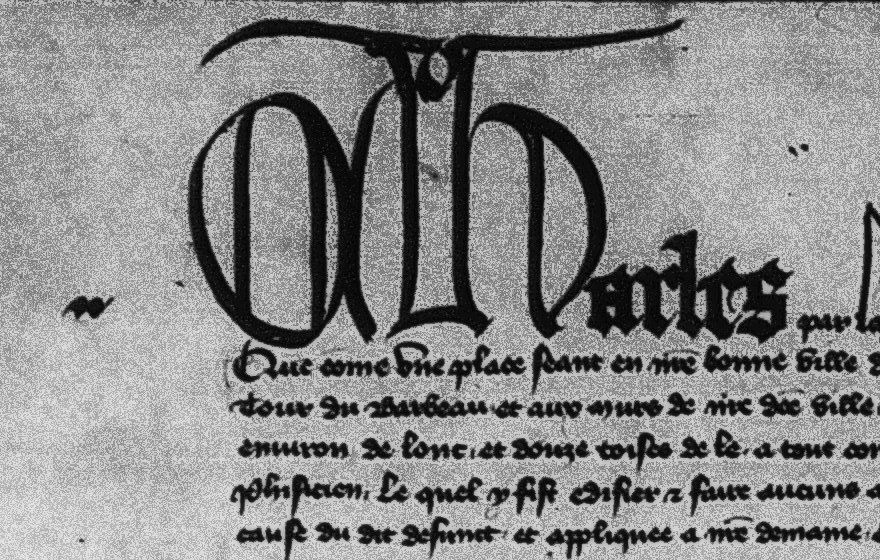 Charles par la
Que come vne place seant en nre bonne ville d
tour du Barbeau et aux murs de nre dce ville
enuiron de lonc, et douze toises de le. a tout
phisicien, Le quel y fist edifier z faire aucuns
cause du dit defunct et appliquee a nre demaine